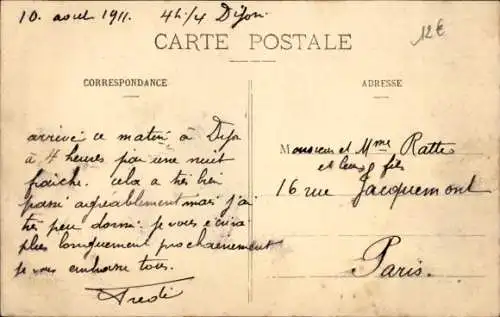 10. aout 1911. 4h 1/4 Dijon
12€
CARTE POSTALE
CORRESPONDANCE
arrivé ce matin à Dijo
à 4 heures par une nuit
fraîche. cela a très bien
passé agréablement mais j'ai
très peu dormi. je vous écrirai
plus longuement prochainement
je vous embrasse tous.
Fredi
ADRESSE
Monsieur et Mme Ratte
et leurs fils
16 rue Jacquemont
Paris.